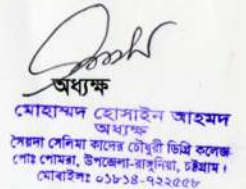 অধ্যক্ষ
মোহাম্মদ হোসাইন আহমদ
অধ্যক্ষ
সৈয়দা সেলিমা কাদের চৌধুরী ডিগ্রি কলেজ
পোঃ পোমরা, উপজেলা-রাঙ্গুনিয়া, চট্টগ্রাম।
মোবাইলঃ ০১৮১৪-৭২২৫৫৮